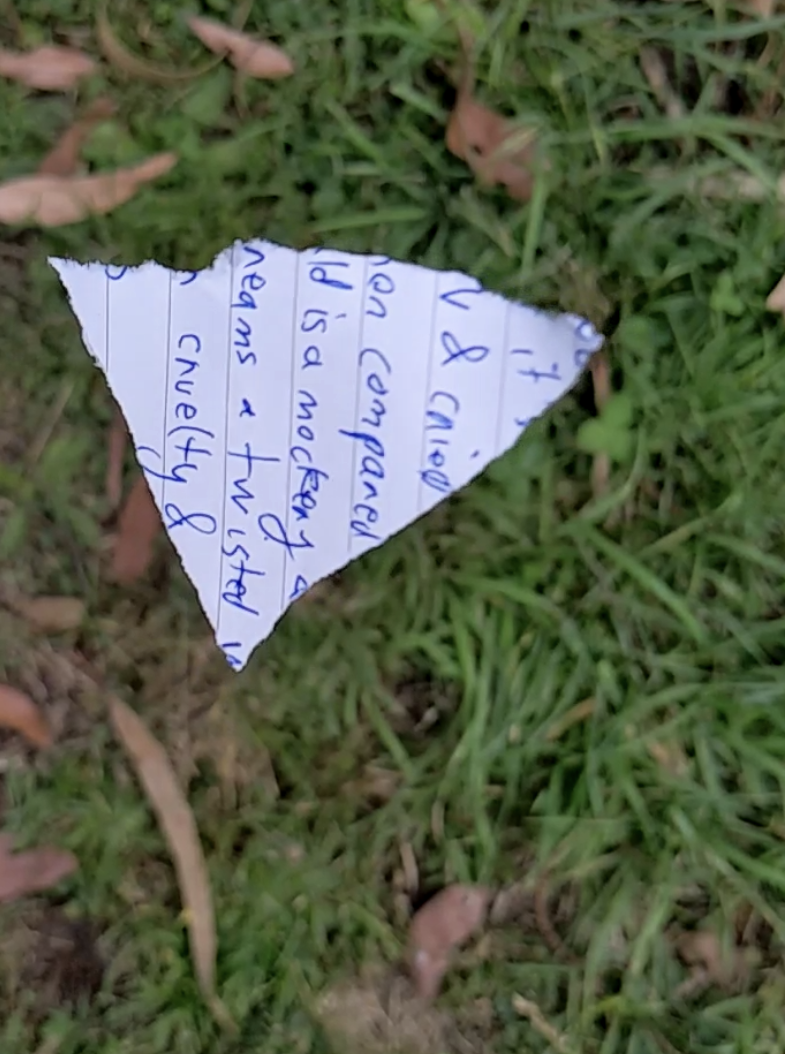 it
& cried
en compared
ld is a mockery a
means a twisted
cruelty &